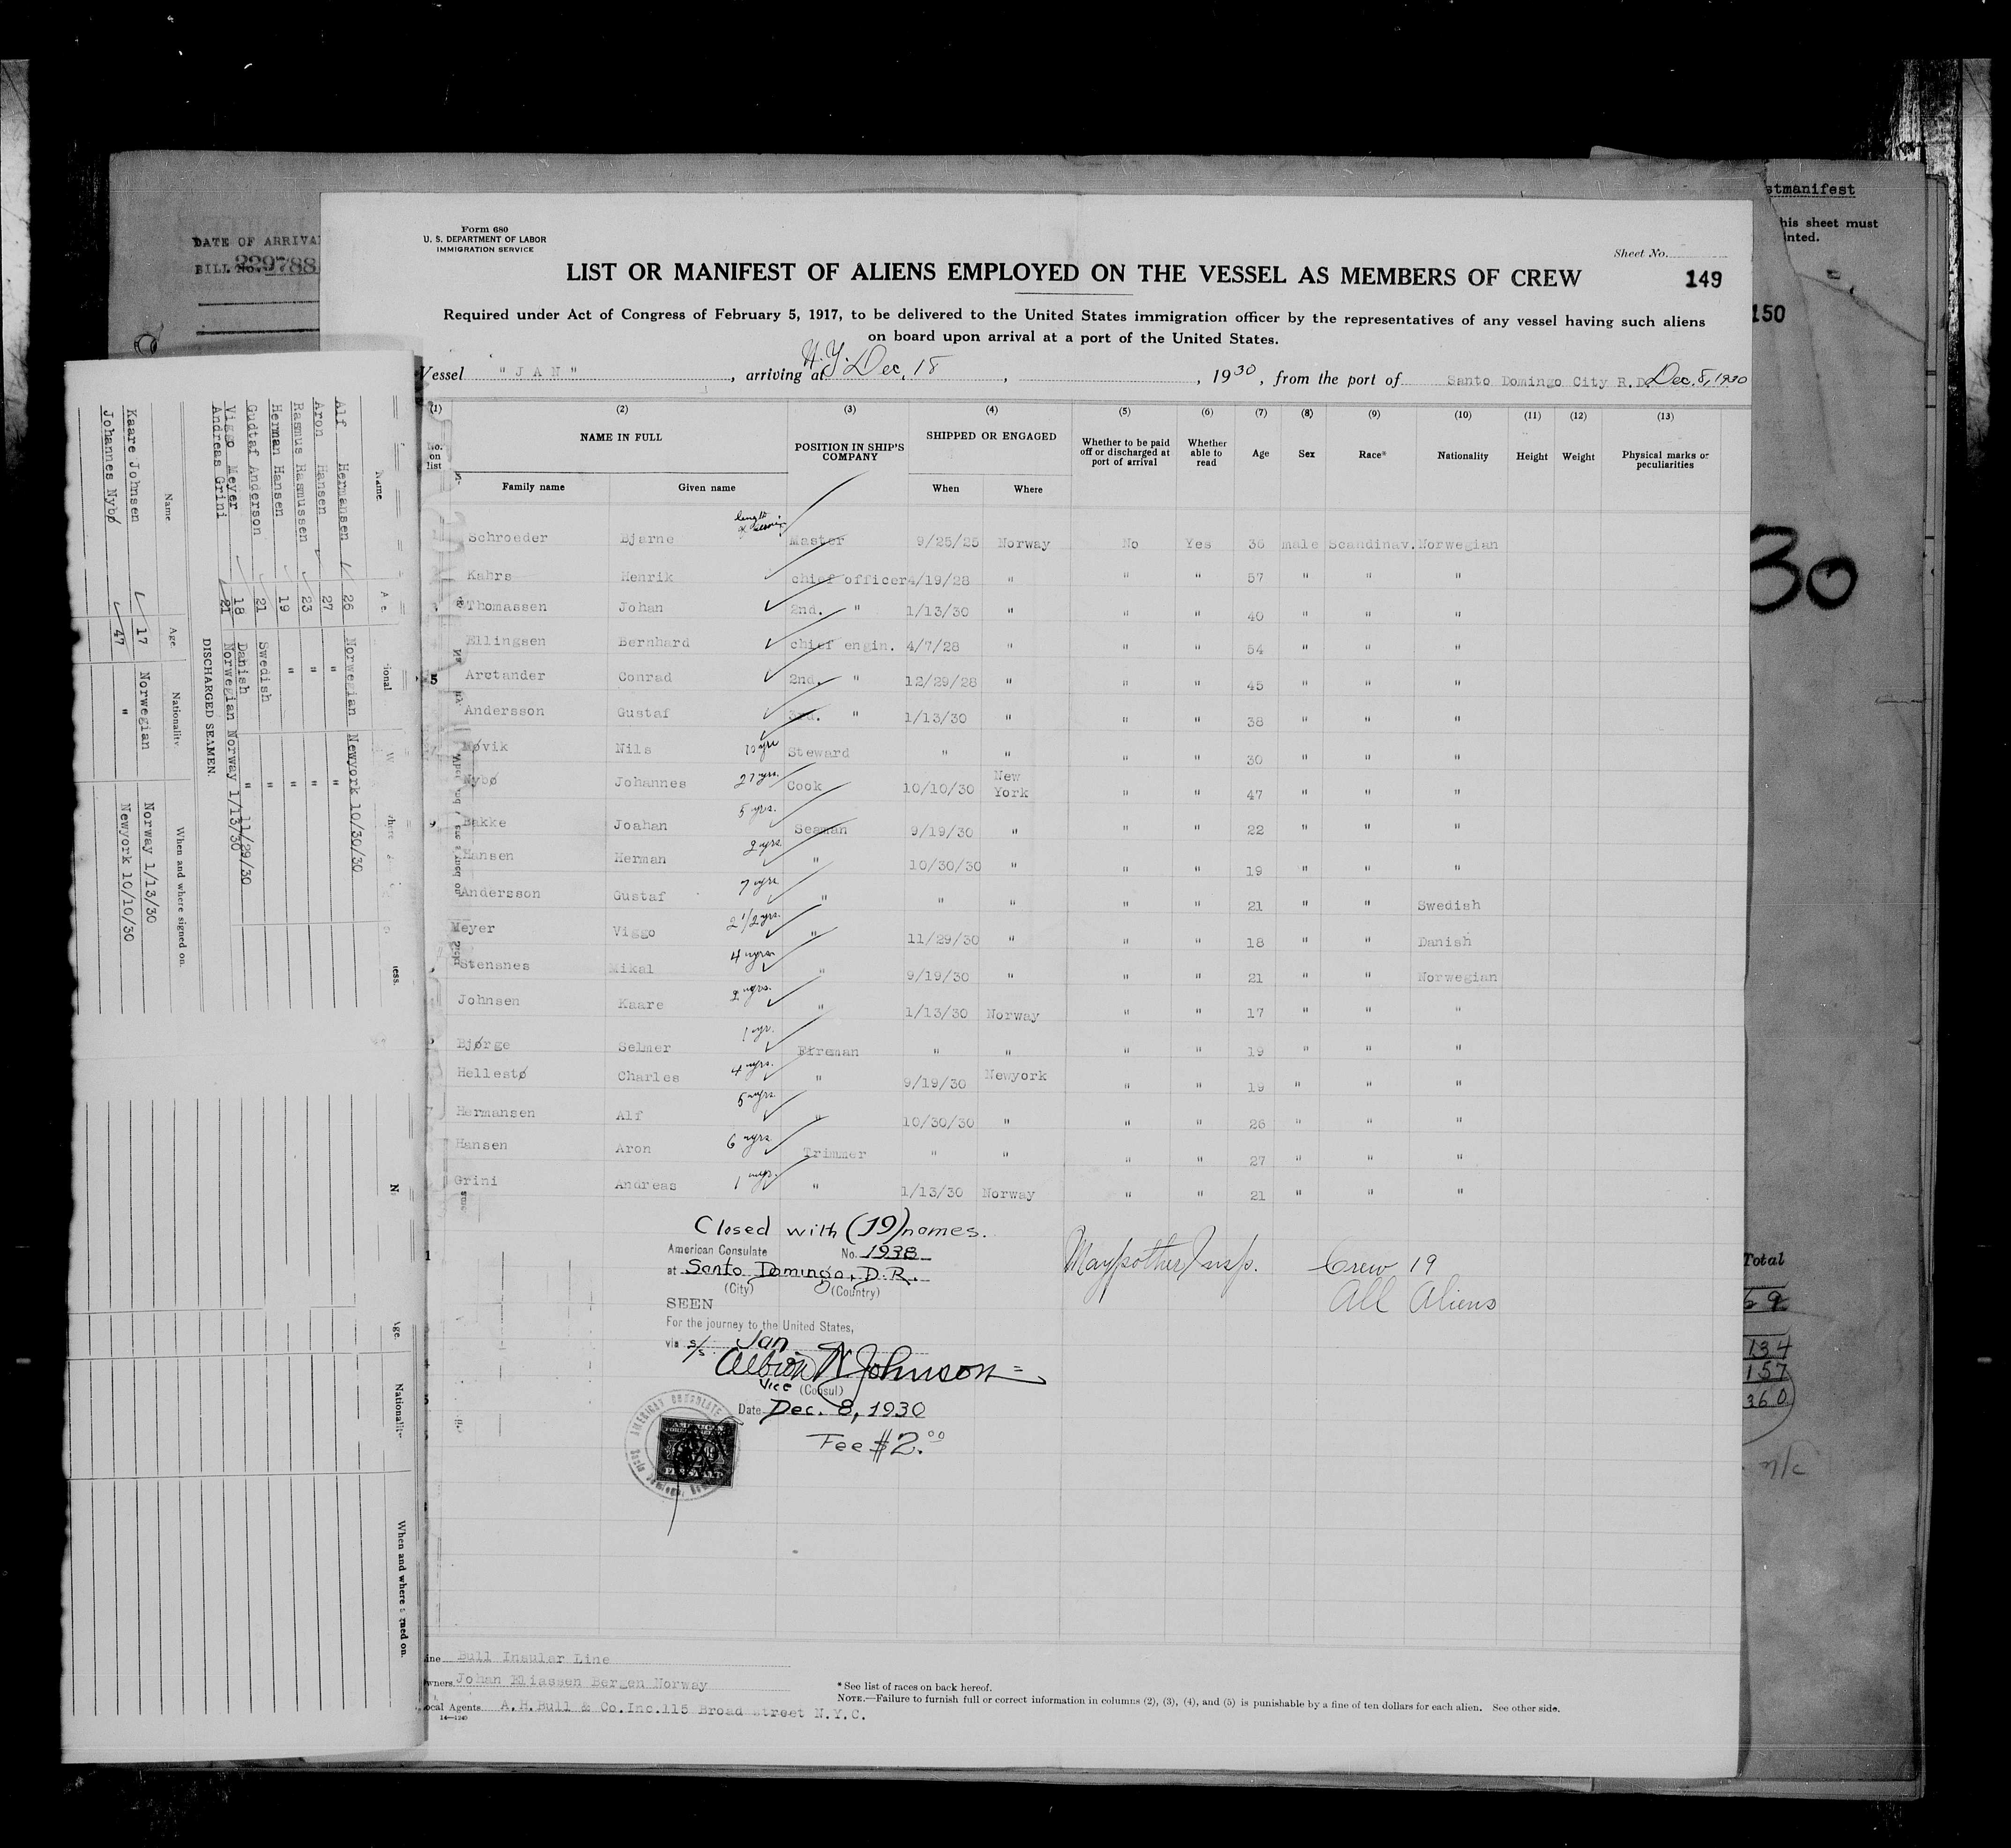 DATE OF ARRIVAL
BILL No. 229788
Form 680
U. S. DEPARTMENT OF LABOR
IMMIGRATION SERVICE
Sheet No.
LIST OR MANIFEST OF ALIENS EMPLOYED ON THE VESSEL AS MEMBERS OF CREW
149
Required under Act of Congress of February 5, 1917, to be delivered to the United States immigration officer by the representatives of any vessel having such aliens
on board upon arrival at a port of the United States.
Vessel "JAN", arriving at N.Y. Dec, 18, 1930, from the port of Santo Domingo City R.D. Dec. 8, 1930
(1) (2) (3) (4) (5) (6) (7) (8) (9) (10) (11) (12) (13)
No. on list
NAME IN FULL
Family name Given name
POSITION IN SHIP'S COMPANY
SHIPPED OR ENGAGED
When Where
Whether to be paid off or discharged at port of arrival
Whether able to read
Age Sex Race* Nationality Height Weight Physical marks or peculiarities
length of service
Schroeder Bjarne Master 9/25/25 Norway No Yes 36 male Scandinav. Norwegian
Kahrs Henrik chief officer 4/19/28 " " " 57 " " "
Thomassen Johan 2nd. " 1/13/30 " " " 40 " " "
Ellingsen Bernhard chief engin. 4/7/28 " " " 54 " " "
5 Arctander Conrad 2nd. " 12/29/28 " " " 45 " " "
Andersson Gustaf 3rd. " 1/13/30 " " " 38 " " "
Møvik Nils 10 yrs Steward " " " " 30 " " "
Nybø Johannes 27 yrs. Cook 10/10/30 New York " " 47 " " "
9 Bakke Joahan 5 yrs. Seaman 9/19/30 " " " 22 " " "
Hansen Herman 2 yrs. " 10/30/30 " " " 19 " " "
Andersson Gustaf 7 yrs " " " " " 21 " " Swedish
Meyer Viggo 2 1/2 yrs. " 11/29/30 " " " 18 " " Danish
Stensnes Mikal 4 yrs " 9/19/30 " " " 21 " " Norwegian
Johnsen Kaare 2 yrs. " 1/13/30 Norway " " 17 " " "
Bjørge Selmer 1 yr. Fireman " " " " 19 " " "
Hellestø Charles 4 yrs. " 9/19/30 Newyork " " 19 " " "
Hermansen Alf 5 yrs. " 10/30/30 " " " 26 " " "
Hansen Aron 6 yrs Trimmer " " " " 27 " " "
Grini Andreas 1 yr. " 1/13/30 Norway " " 21 " " "
Closed with (19) names.
American Consulate No. 1938
at Santo Domingo, D.R.
(City) (Country)
SEEN
For the journey to the United States,
via s/s. Jan
Albion W Johnson
Vice (Consul)
Date Dec. 8, 1930
Fee $2.00
AMERICAN CONSULATE
Insp.
Crew 19
All Aliens
Line Bull Insular Line
Owners Johan Eliassen Bergen Norway
Local Agents A.H.Bull & Co.Inc.115 Broad street N.Y.C.
14—1240
* See list of races on back hereof.
NOTE.—Failure to furnish full or correct information in columns (2), (3), (4), and (5) is punishable by a fine of ten dollars for each alien. See other side.
Name
Alf Hermansen 26 Norwegian Newyork 10/30/30
Aron Hansen 27 " "
Rasmus Rasmussen 23 " "
Herman Hansen 19 " "
Gudtaf Anderson 21 Swedish "
Viggo Meyer 18 Danish " 11/29/30
Andreas Grini 21 Norwegian Norway 1/13/30
DISCHARGED SEAMEN.
Name Age. Nationality. When and where signed on.
Kaare Johnsen 17 Norwegian Norway 1/13/30
Johannes Nybø 47 " Newyork 10/10/30
Age. Nationalit When and where s ned on.
stmanifest
his sheet must
nted.
150
30
Total
69
134
157
360